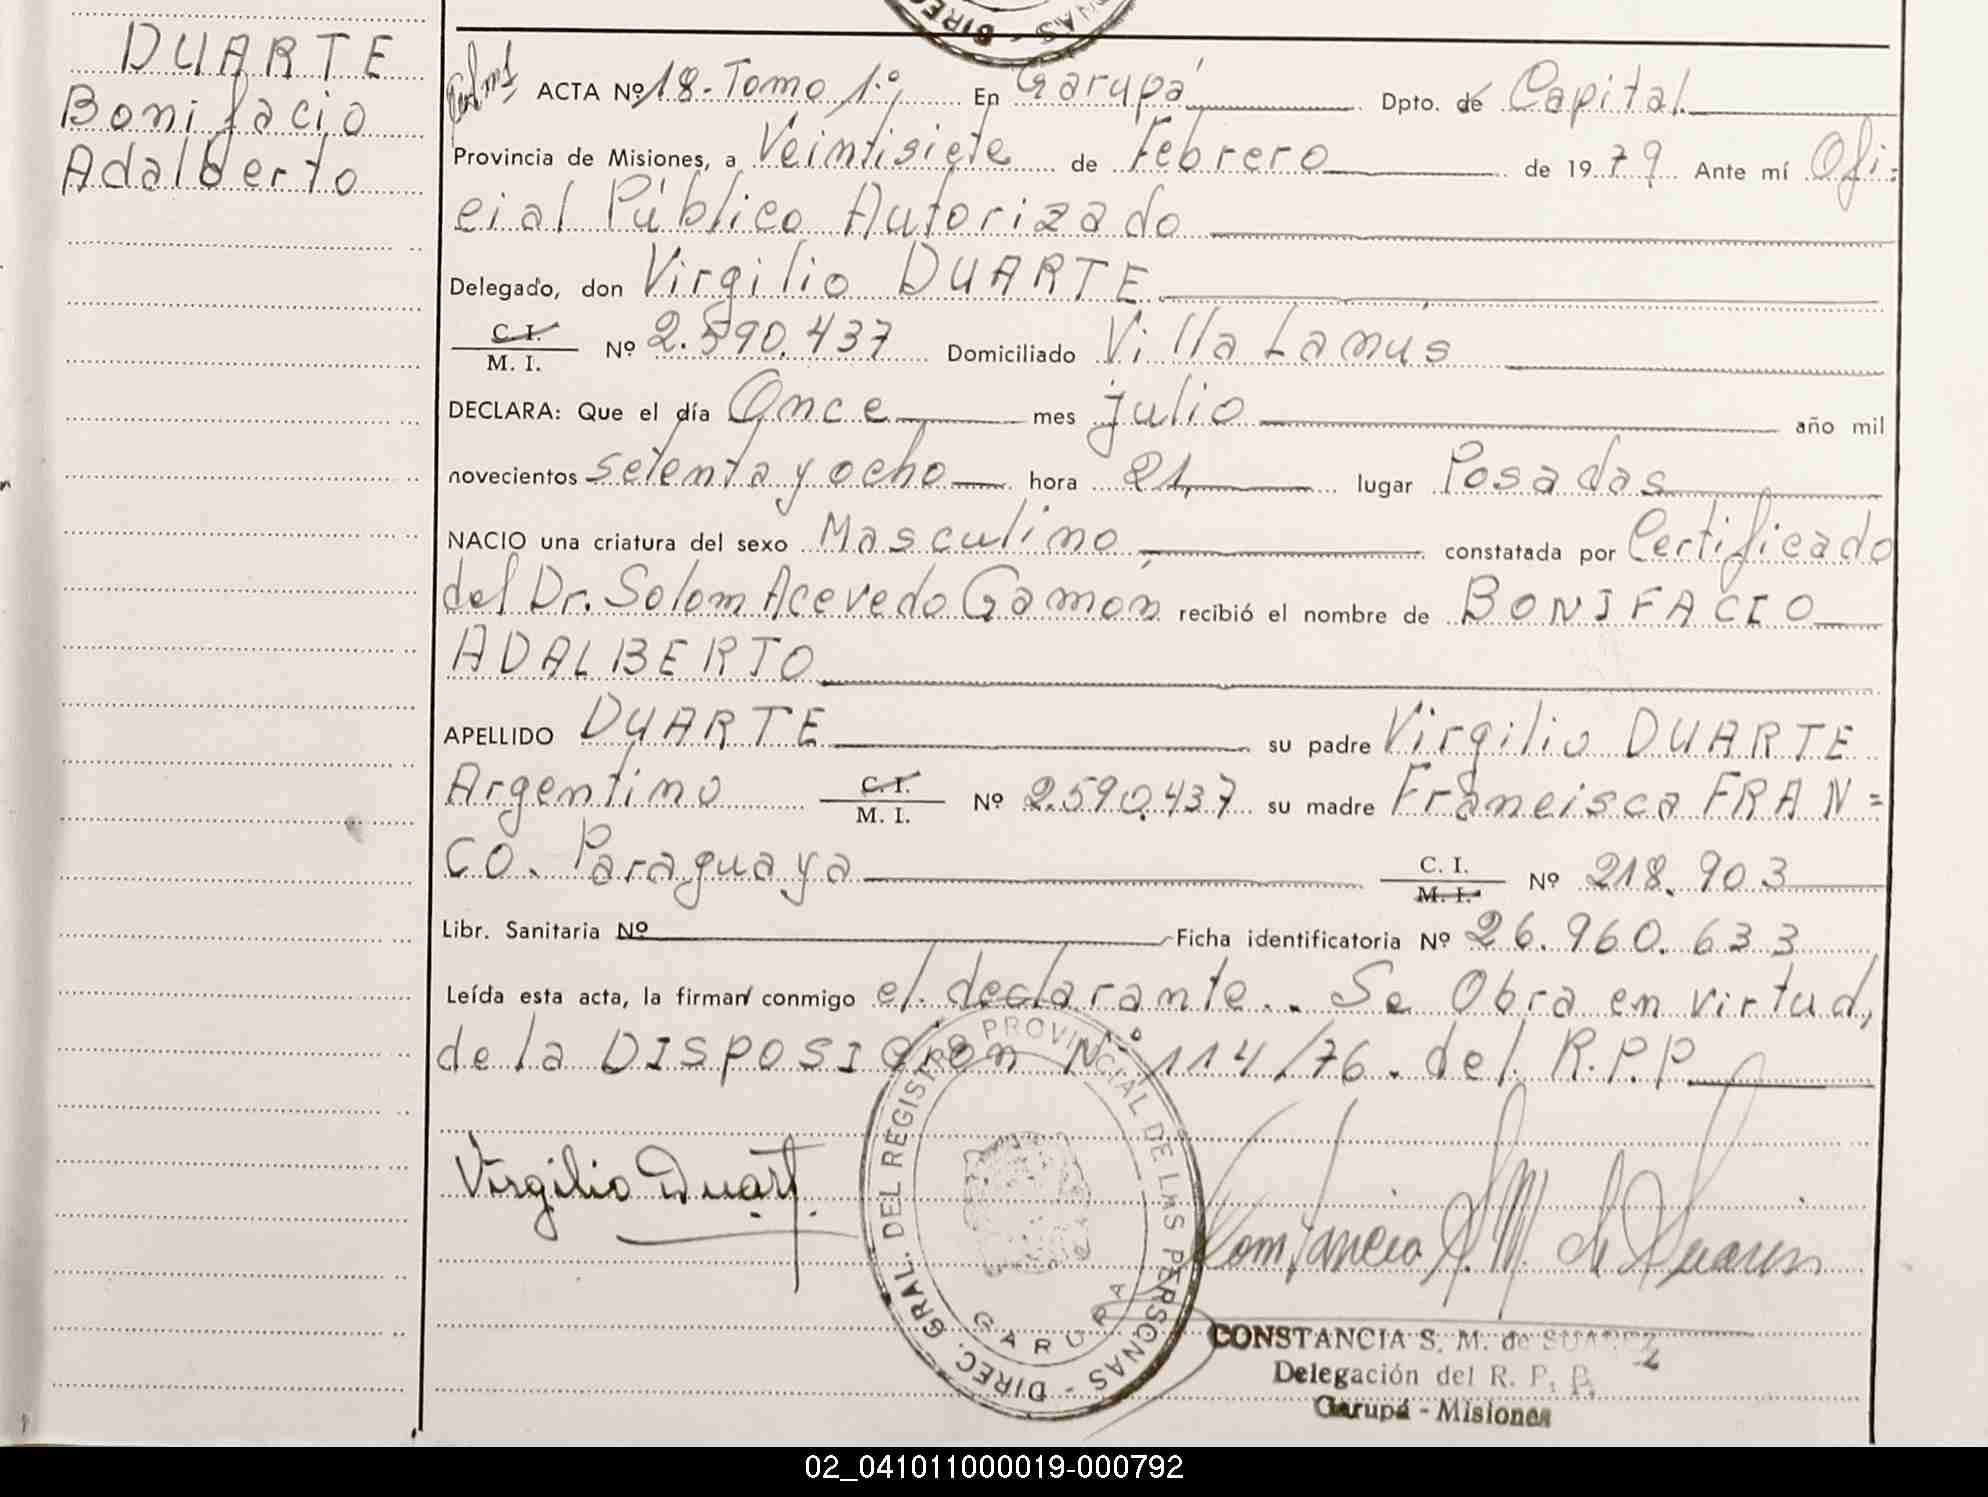 DUARTE
Bonifacio
Adalberto
ACTA Nº 18.-Tomo 1.º, En Garupá Dpto. de Capital
Provincia de Misiones, a Veintisiete de Febrero de 1979 Ante mí Ofi=
cial Público Autorizado
Delegado, don Virgilio DUARTE
C. I.
M. I. Nº 2.590.437 Domiciliado Villa Lanús
DECLARA: Que el día Once mes julio año mil
novecientos setenta y ocho hora 21, lugar Posadas
NACIO una criatura del sexo Masculino constatada por Certificado
del Dr. Solom Acevedo Gamón recibió el nombre de BONIFACIO
ADALBERTO
APELLIDO DUARTE su padre Virgilio DUARTE
Argentino C. I. M. I. Nº 2.590.437 su madre Francisca FRAN=
CO. Paraguaya C. I. M. I. Nº 218.903
Libr. Sanitaria Nº Ficha identificatoria Nº 26.960.633
Leída esta acta, la firman conmigo el declarante.. Se Obra en virtud,
de la DISPOSICION Nº 114/76. del R.P.P
Virgilio Duart.
DIREC. GRAL. DEL REGISTRO PROVINCIAL DE LAS PERSONAS -
GARUPA
Constancia S. M. de Suarez
CONSTANCIA S. M. de SUAREZ
Delegación del R. P. P.
Garupá - Misiones
02_041011000019-000792